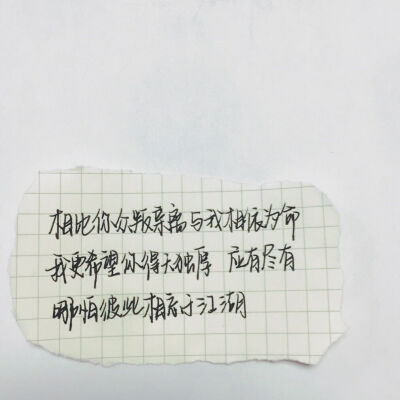 相比你众叛亲离与我相依为命
我更希望你得天独厚 应有尽有
哪怕彼此相忘于江湖